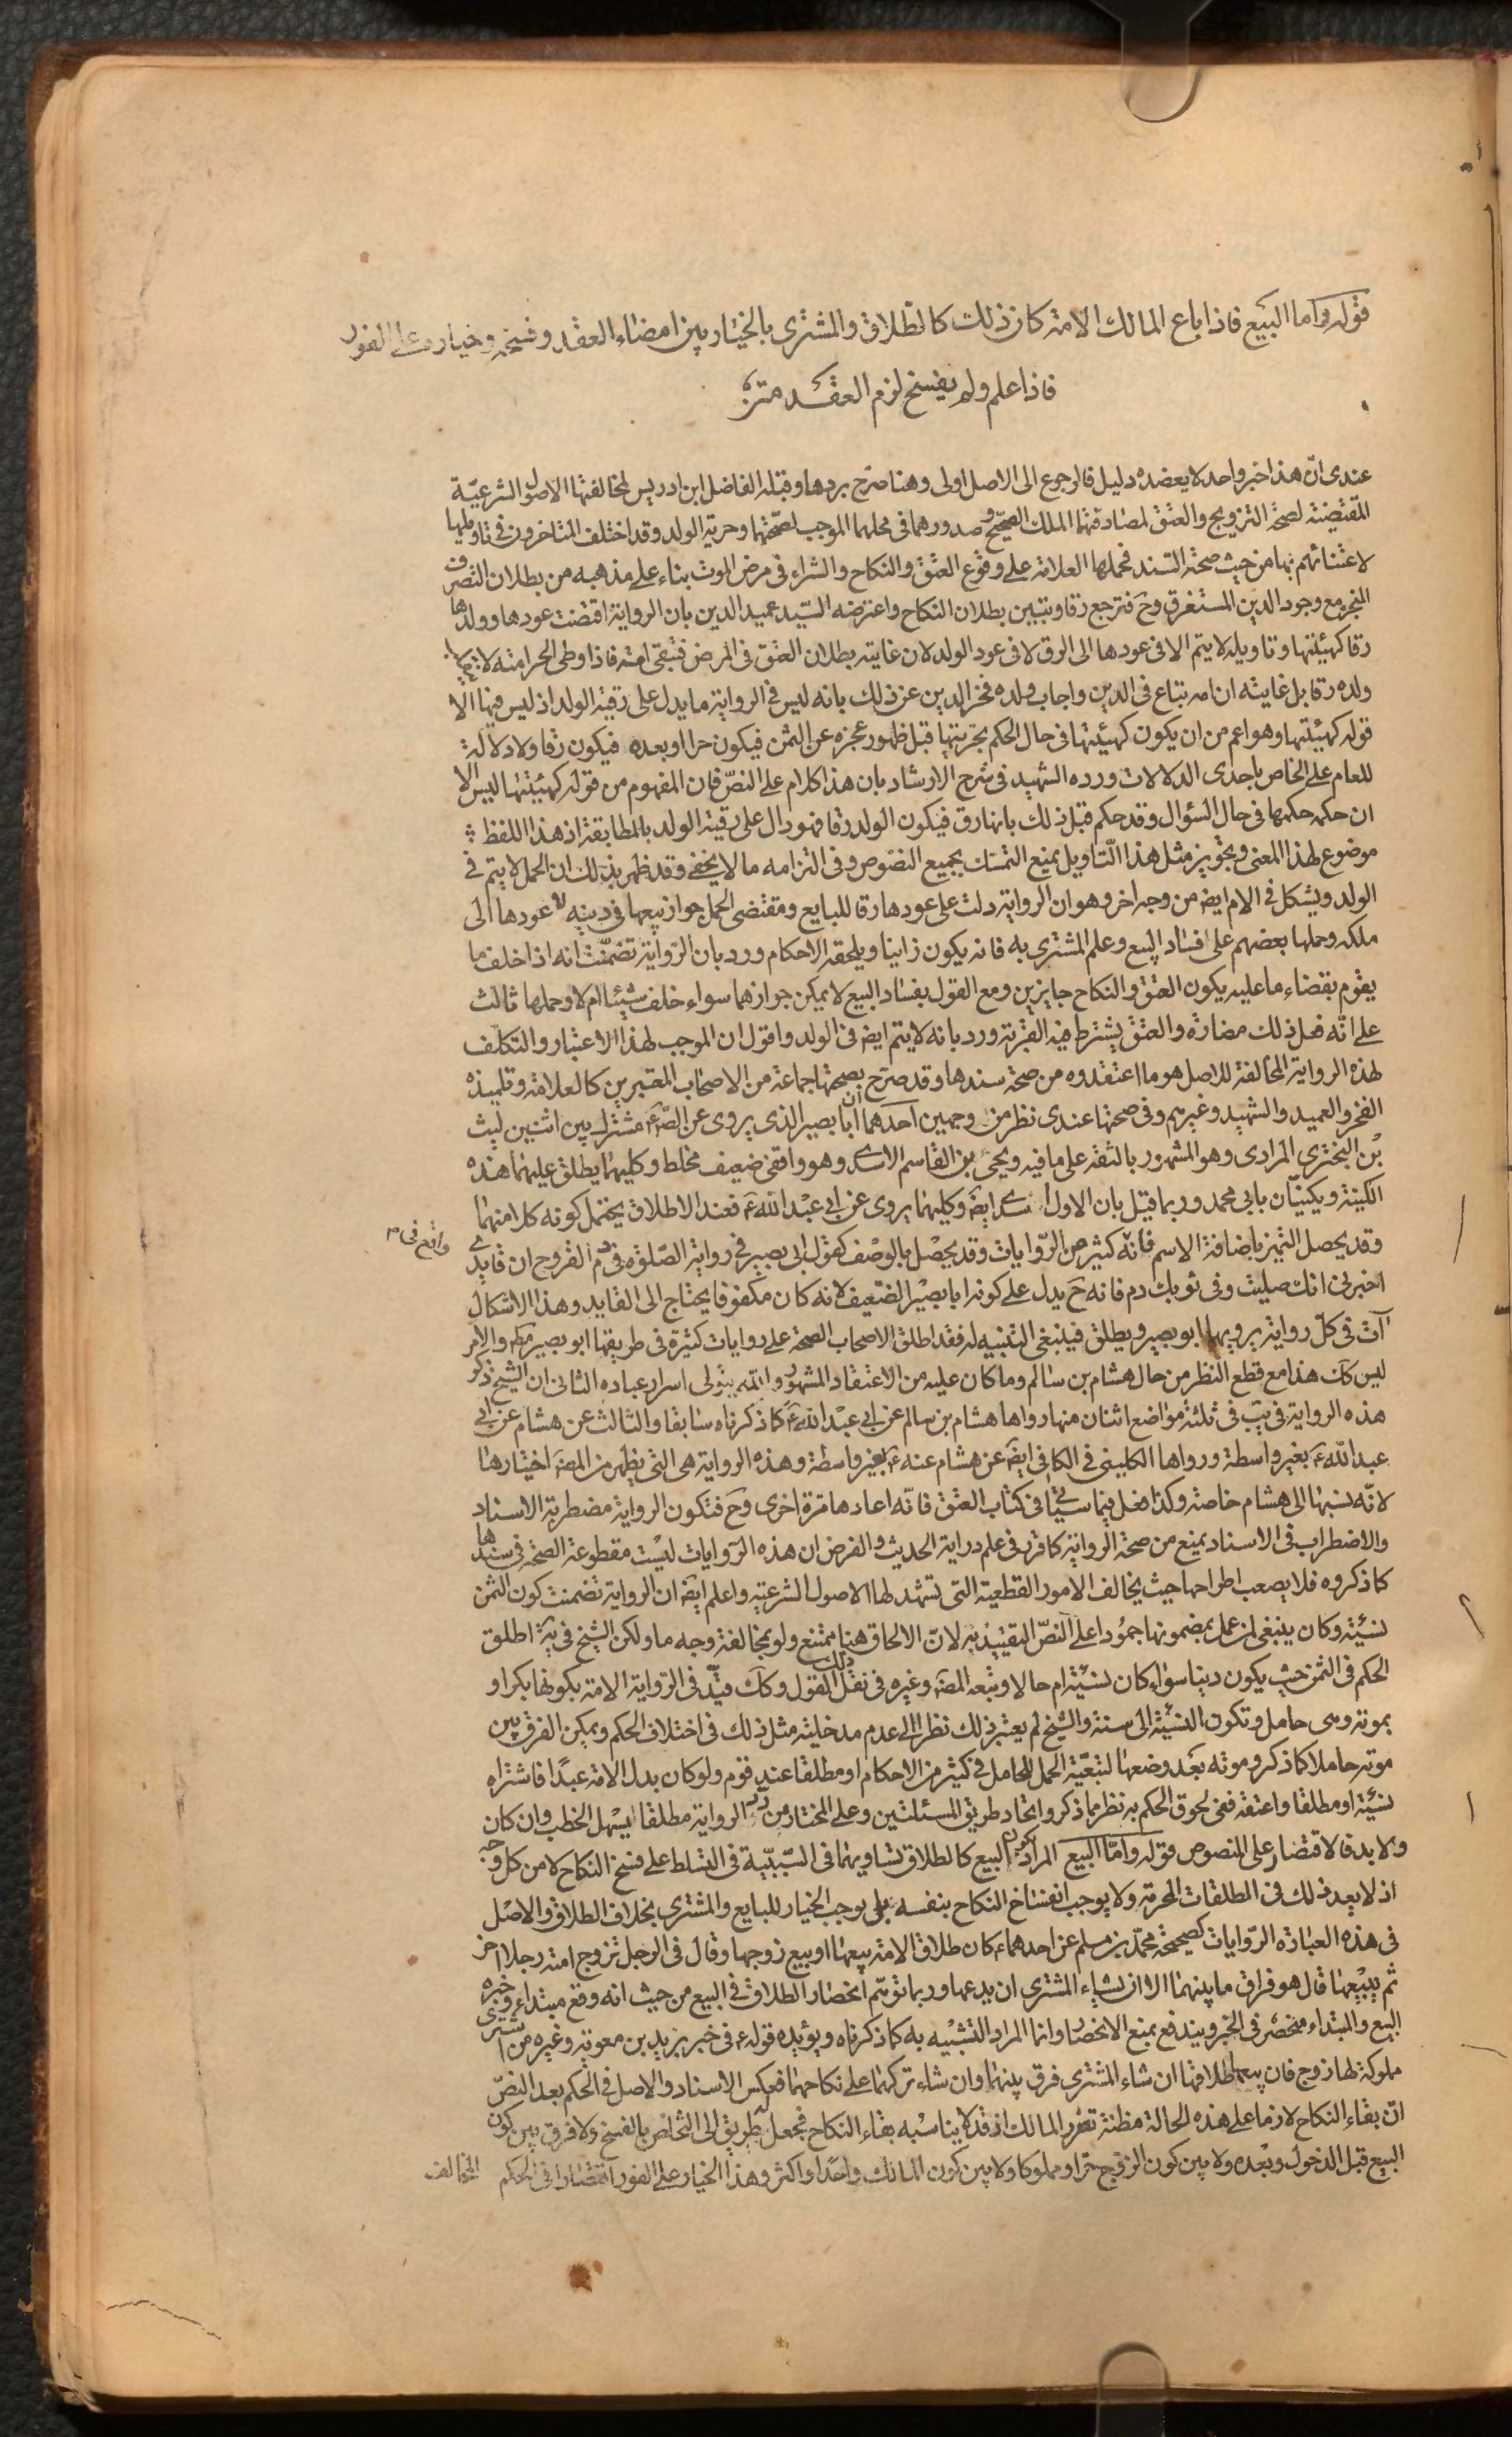 قوله واما البيع فاذا باع المالك الامة كان ذلك كالطلاق والمشترى بالخيار بين امضاء العقد وفسخه وخياره على الفور
فاذا علم ولم يفسخ لزم العقد متن
عندى انّ هذا خبر واحد لا يعضده دليل فالرجوع الى الاصل اولى وهنا صرح بردها وقبله الفاضل ابن ادريس لمخالفتها الاصول الشرعيّة
المقتضية لصحة التزويج والعتق لمصادفتهما الملك الصحيح وصدورهما فى محلهما الموجب لصحّتهما وحرية الولد وقد اختلف المتاخرون فى تاويلها
لاعتنائهم بها من حيث صحة السند فحملها العلامة على وقوع العتق والنكاح والشراء فى مرض الموت بناء على مذهبه من بطلان التصرف
المنجز مع وجود الدين المستغرق وح فترجع رقا ويتبين بطلان النكاح واعترضه السيّد عميد الدين بان الرواية اقتضت عودها وولدها
رقا كهيئتها وتاويله لا يتم الا فى عودها الى الرق لا فى عود الولد لان غايته بطلان العتق فى المرض فتبقى امته فاذا وطى الحر امته لا
ولده رقا بل غايته ان امه تباع فى الدين واجاب ولده فخر الدين عن ذلك بانه ليس فى الرواية ما يدل على رقية الولد اذ ليس فيها الا
قوله كهيئتها وهو اعم من ان يكون كهيئتها فى حال الحكم بحريتها قبل ظهور عجزه عن الثمن فيكون حرا او بعده فيكون رقا ولا دلالة
للعام على الخاص باحدى الدلالات ورده الشهيد فى شرح الارشاد بان هذا كلام على النصّ فان المفهوم من قوله كهيئتها ليس الا
ان حكمه حكمها فى حال السؤال وقد حكم قبل ذلك بانها رق فيكون الولد رقا فهو دال على رقية الولد بالمطابقة اذ هذا اللفظ
موضوع لهذا المعنى وتجويز مثل هذا التّاويل يمنع التمسّك بجميع النصوص وفى التزامه ما لا يخفى وقد ظهر بذلك ان الحمل لا يتم فى
الولد ويشكل فى الام ايض من وجه اخر وهو ان الرواية دلت على عودها رقا للبايع ومقتضى الحمل جواز بيعها فى دينه لا عودها الى
ملكه وحملها بعضهم على فساد البيع وعلم المشترى به فانه يكون زانيا ويلحقه الاحكام ورد بان الرّواية تضمّنت انه اذا خلف ما
يقوم بقضاء ما عليه يكون العتق والنكاح جايزين ومع القول بفساد البيع لا يمكن جوازهما سواء خلف شيئا ام لا وحملها ثالث
على انّه فعل ذلك مضارة والعتق يشترط فيه القربة ورد بانه لا يتم ايض فى الولد واقول ان الموجب لهذا الاعتبار والتكلّف
لهذه الرواية المخالفة للاصل هو ما اعتقدوه من صحة سندها وقد صرّح بصحتها جماعة من الاصحاب المعتبرين كالعلامة وتلميذه
الفخر والعميد والشهيد وغيرهم وفى صحتها عندى نظر من وجهين احدهما ان ابا بصير الذى يروى عن الصّ ع مشترك بين اثنين ليث
بن البخترى المرادى وهو المشهور بالثقة على ما فيه ويحيى بن القاسم الاسدى وهو واقفى ضعيف مخلط وكليهما يطلق عليهما هذه
الكينة ويكنيّان بابى محمد وربما قيل بان الاول اسدى ايض وكليهما يروى عن ابى عبد الله ع فعند الاطلاق يحتمل كونه كلا منهما
وقد يحصل التميز باضافة الاسم فانّه كثير من الرّوايات وقد يحصل بالوصف كقول ابى بصير فى رواية الصّلوة فى دم القروح ان قايدى
واقع فى م
اخبرنى انك صليت وفى ثوبك دم فانه ح يدل على كونه ابا بصير الضعيف لانه كان مكفوفا يحتاج الى القايد وهذا الاشكال
آت فى كلّ رواية يرويها ابو بصير ويطلق فينبغى التنبيه له فقد اطلق الاصحاب الصحة على روايات كثيرة فى طريقها ابو بصير مط والامر
ليس كك هذا مع قطع النظر من حال هشام بن سالم وما كان عليه من الاعتقاد المشهور والله يتولى اسرار عباده الثانى ان الشيخ ذكر
هذه الرواية فى يب فى ثلثة مواضع اثنان منها رواها هشام بن سالم عن ابى عبد الله ع كما ذكرناه سابقا والثالث عن هشام عن ابى
عبد الله ع بغير واسطة ورواها الكلينى فى الكافى ايض عن هشام عنه ع بغير واسطة وهذه الرواية هى التى يظهر من المص اختيارها
لانّه نسبها الى هشام خاصة وكذا فعل فيما سياتى فى كتاب العتق فانّه اعادها مرّة اخرى وح فتكون الرواية مضطربة الاسناد
والاضطراب فى الاسناد يمنع من صحة الرواية كما قرر فى علم دراية الحديث والفرض ان هذه الرّوايات ليست مقطوعة الصحّة فى سندها
كما ذكروه فلا يصعب اطراحها حيث يخالف الامور القطعية التى تشهد لها الاصول الشرعية واعلم ايض ان الرواية تضمنت كون الثمن
نسيئة وكان ينبغى لمن عمل بمضمونها جمودا على النصّ التقييد به لانّ الالحاق هنا ممتنع ولو بمخالفة وجه ما ولكن الشيخ فى ية اطلق
الحكم فى الثمن حيث يكون دينا سواء كان نسيئة ام حالا وتبعه المص وغيره فى نقل ذلك القول وكك قيّد فى الرّواية الامة بكونها بكرا و
بموته وهى حامل وتكون النسيئة الى سنة والشيخ لم يعتبر ذلك نظرا الى عدم مدخلية مثل ذلك فى اختلاف الحكم ويمكن الفرق بين
موته حاملا كما ذكر وموته بعد وضعها لتبعيّة الحمل للحامل فى كثير من الاحكام او مطلقا عند قوم ولو كان بدل الامة عبدًا فاشتراه
نسيئة او مطلقا واعتقه ففى لحوق الحكم به نظر مما ذكر واتحاد طريق المسئلتين وعلى المختار من رد الرواية مطلقا يسهل الخطب وان كان
ولا بد فالاقتصار على المنصوص قوله وامّا البيع المراد كون البيع كالطلاق تساويهما فى السّببيّة فى التسلط على فسخ النكاح لا من كل وجه
اذ لا يعد ذلك فى الطلقات المحرمة ولا يوجب انفساخ النكاح بنفسه بل يوجب الخيار للبايع والمشترى بخلاف الطلاق والاصل
فى هذه العبارة الرّوايات كصحيحة محمّد بن مسلم عن احدهما ع كان طلاق الامة بيعها او بيع زوجها وقال فى الرجل تزوج امته رجلا اخر
ثم يبيعها قال هو فراق ما بينهما الا ان يشاء المشترى ان يدعها وربما توهّم انحصار الطلاق فى البيع من حيث انه وقع مبتداء وخبره
البيع والمبتداء منحصر فى الخبر ويندفع بمنع الانحصار وانما المراد التشبيه به كما ذكرناه ويؤيده قوله ع فى خبر بريد بن معوية وغيره من اشترى
مملوكة لها زوج فان بيعها طلاقها ان شاء المشترى فرق بينهما وان شاء تركهما على نكاحهما فعكس الاسناد والاصل فى الحكم بعد النصّ
انّ بقاء النكاح لازما على هذه الحالة مظنة تضرر المالك اذ قد لا يناسبه بقاء النكاح فجعل له طريق الى التخلص بالفسخ ولا فرق بين كون
البيع قبل الدخول وبعده ولا بين كون الزوج حرا ومملوكا ولا بين كون المالك واحدًا او اكثر وهذا الخيار على الفور اقتصارا فى الحكم المخالف